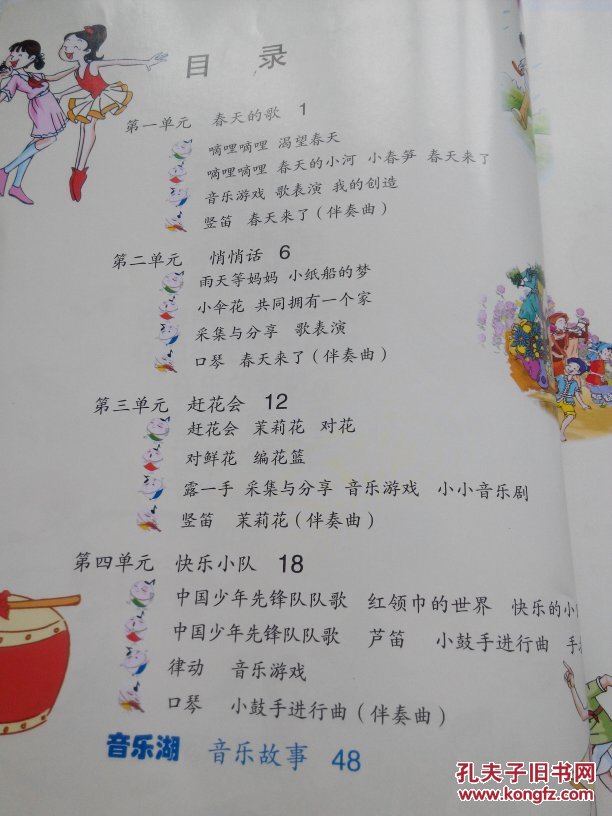 目 录
第一单元 春天的歌 1
嘀哩嘀哩 渴望春天
嘀哩嘀哩 春天的小河 小春笋 春天来了
音乐游戏 歌表演 我的创造
竖笛 春天来了(伴奏曲)
第二单元 悄悄话 6
雨天等妈妈 小纸船的梦
小伞花 共同拥有一个家
采集与分享 歌表演
口琴 春天来了(伴奏曲)
第三单元 赶花会 12
赶花会 茉莉花 对花
对鲜花 编花篮
露一手 采集与分享 音乐游戏 小小音乐剧
竖笛 茉莉花(伴奏曲)
第四单元 快乐小队 18
中国少年先锋队队歌 红领巾的世界 快乐的小
中国少年先锋队队歌 芦笛 小鼓手进行曲 手
律动 音乐游戏
口琴 小鼓手进行曲(伴奏曲)
音乐湖 音乐故事 48
孔夫子旧书网
www.kongfz.com